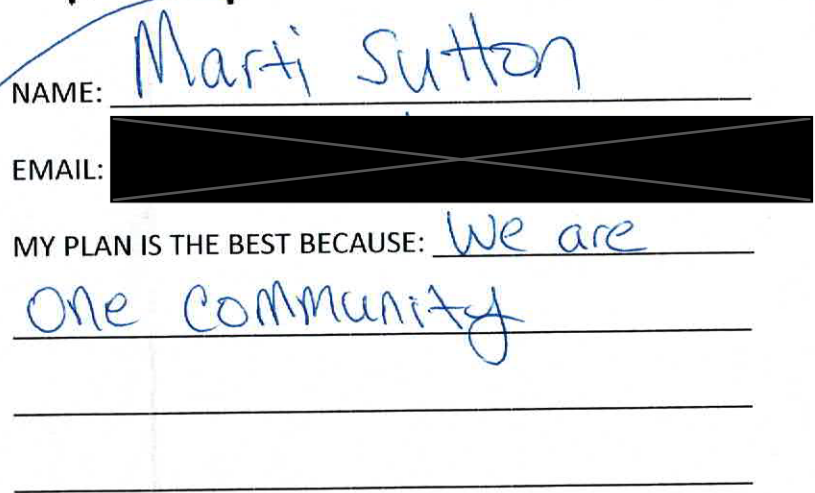 NAME: Marti Sutton
EMAIL:
MY PLAN IS THE BEST BECAUSE: We are
One Community